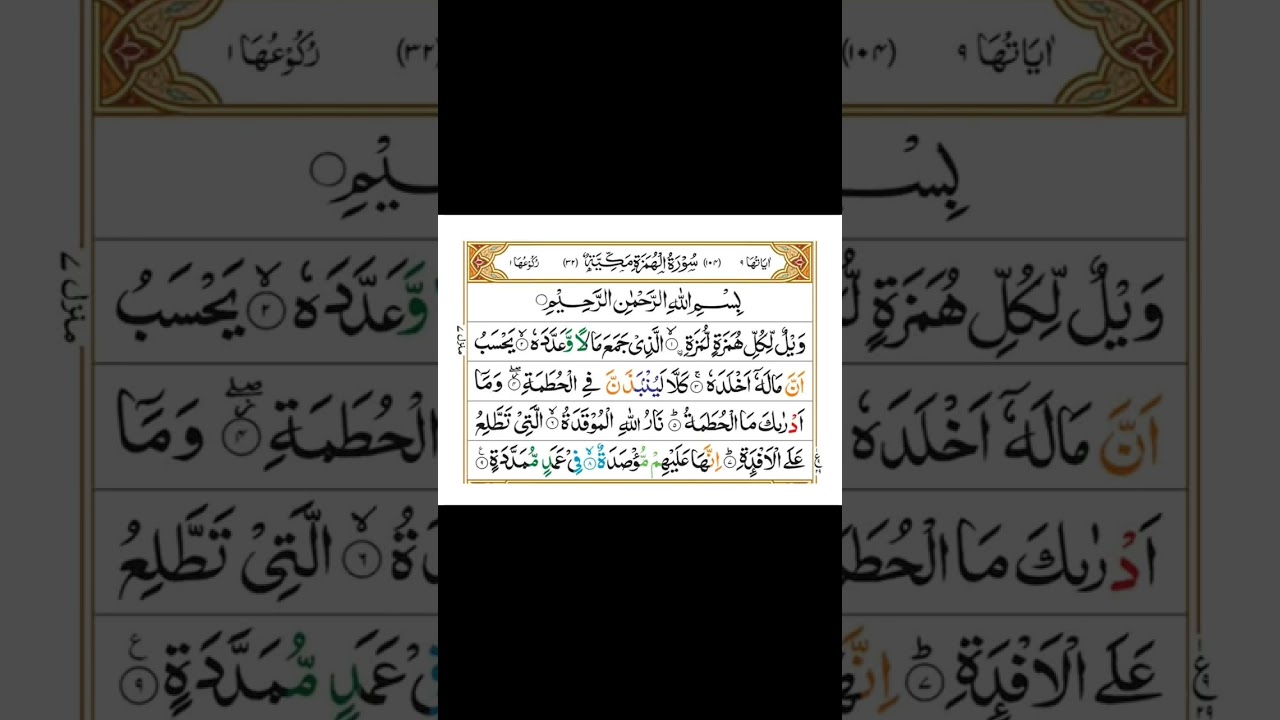 اٰیَاتُهَا ۹ (۱۰۴) سُوْرَةُ الْهُمَزَةِ مَكِّیَّةٌ (۳۲) رُكُوْعُهَا ۱
بِسْمِ اللّٰهِ الرَّحْمٰنِ الرَّحِیْمِ
وَیْلٌ لِّكُلِّ هُمَزَةٍ لُّمَزَةٍ ۙ﴿۱﴾ الَّذِیْ جَمَعَ مَالًا وَّعَدَّدَهٗ ۙ﴿۲﴾ یَحْسَبُ
اَنَّ مَالَهٗۤ اَخْلَدَهٗ ۚ﴿۳﴾ كَلَّا لَیُنْۢبَذَنَّ فِی الْحُطَمَةِ ۖ﴿۴﴾ وَمَاۤ
اَدْرٰىكَ مَا الْحُطَمَةُ ؕ﴿۵﴾ نَارُ اللّٰهِ الْمُوْقَدَةُ ۙ﴿۶﴾ الَّتِیْ تَطَّلِعُ
عَلَی الْاَفْـِٕدَةِ ؕ﴿۷﴾ اِنَّهَا عَلَیْهِمْ مُّؤْصَدَةٌ ۙ﴿۸﴾ فِیْ عَمَدٍ مُّمَدَّدَةٍ ﴿۹﴾
منزل ۷